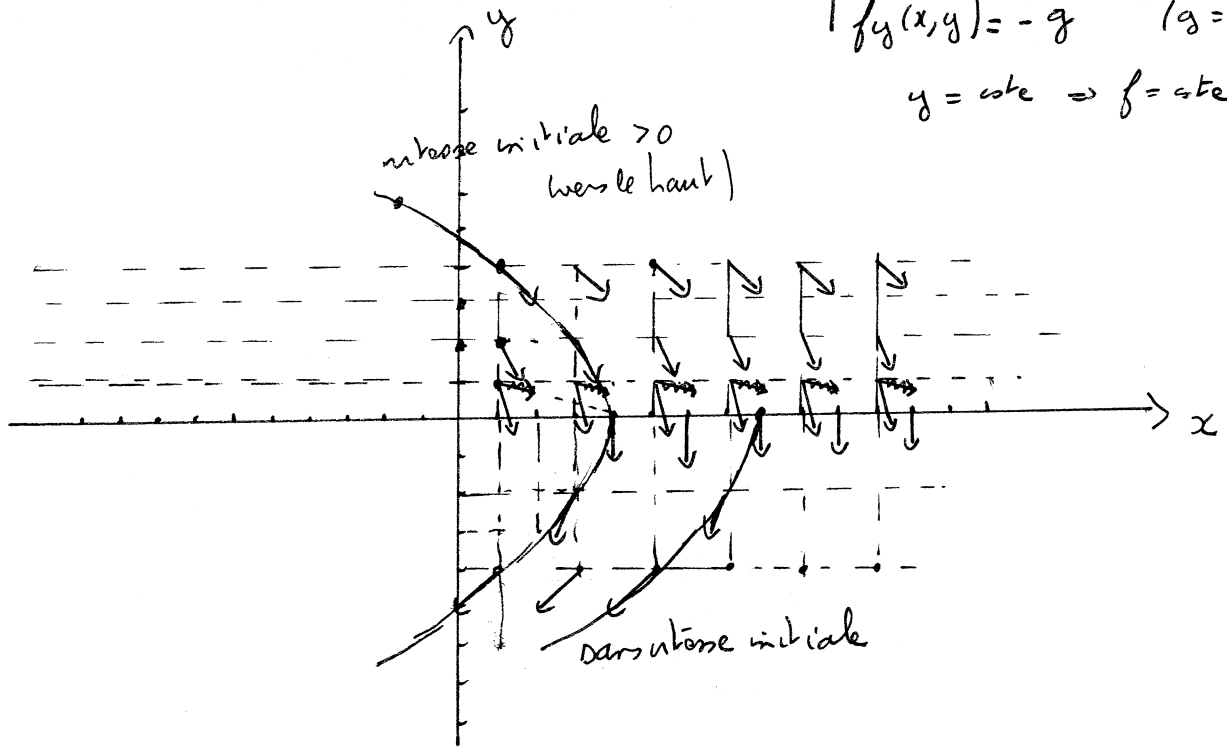 y
f_y(x,y) = - g (g =
y = cste ⇒ f = cste
vitesse initiale > 0
(vers le haut)
x
sans vitesse initiale